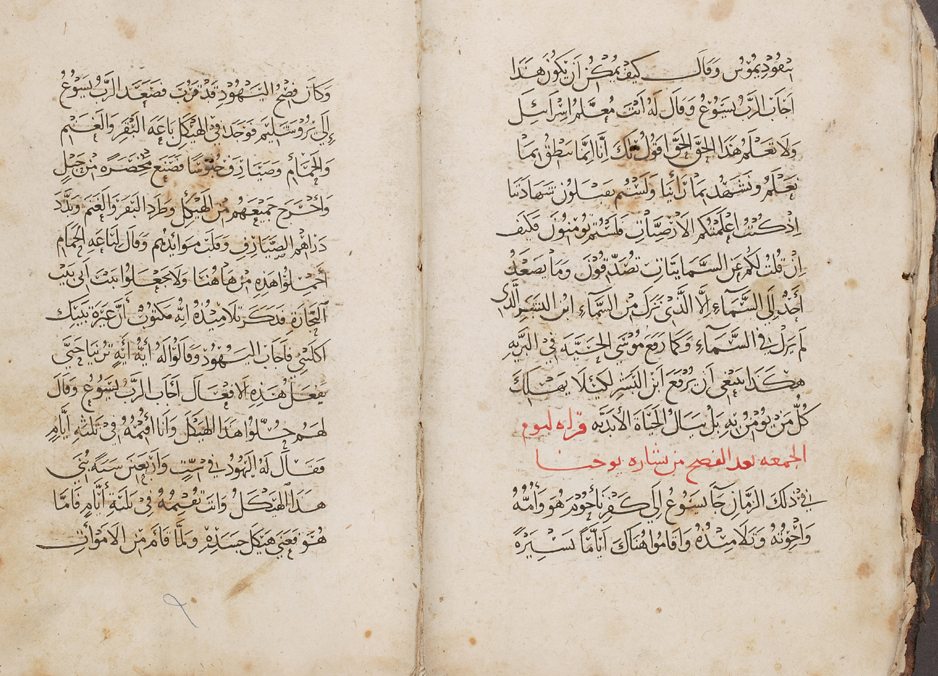 نيقوديموس وقال كيف يمكن ان يكون هذا
اجاب الرب يسوع وقال له انت معلم اسرائيل
ولا تعلم هذا الحق الحق اقول لك اننا انما ننطق بما
نعلم ونشهد بما رأينا ولستم تقبلون شهادتنا
اذ كنت اعلمتكم الارضيات فلستم تؤمنون فكيف
ان قلت لكم عن السمايات تصدقون وما يصعد
احد الى السماء الا الذي نزل من السماء ابن البشر الذي
لم يزل في السماء وكما رفع موسى الحية في البرية
هكذا ينبغي ان يرفع ابن البشر لكيلا يهلك
كل من يؤمن به بل ينال الحياة الابدية قراه ليوم
الجمعه بعد الفصح من بشاره يوحنا
في ذلك الزمان جا يسوع الى كفرناحوم هو وامه
واخوته وتلاميذه واقاموا هناك اياما يسيرة
وكان فصح اليهود قد قرب فصعد الرب يسوع
الى يروسليم فوجد في الهيكل باعة البقر والغنم
والحمام وصيارف جلوسا فصنع مخصرة من حبل
واخرج جميعهم من الهيكل وطرد البقر والغنم وبدد
دراهم الصيارف وقلب موايدهم وقال لباعة الحمام
احملوا هذه من هاهنا ولا تجعلوا بيت ابي بيت
التجارة فذكر تلاميذه انه مكتوب ان غيرة بيتك
اكلتني فاجاب اليهود وقالوا له اية اية ترينا حتى
تفعل هذه الافعال اجاب الرب يسوع وقال
لهم حلوا هذا الهيكل وانا اقيمه في ثلثة ايام
فقال له اليهود في ست واربعين سنة بني
هذا الهيكل وانت تقيمه في ثلثة ايام فاما
هو فعنى هيكل جسده ولما قام من الاموات